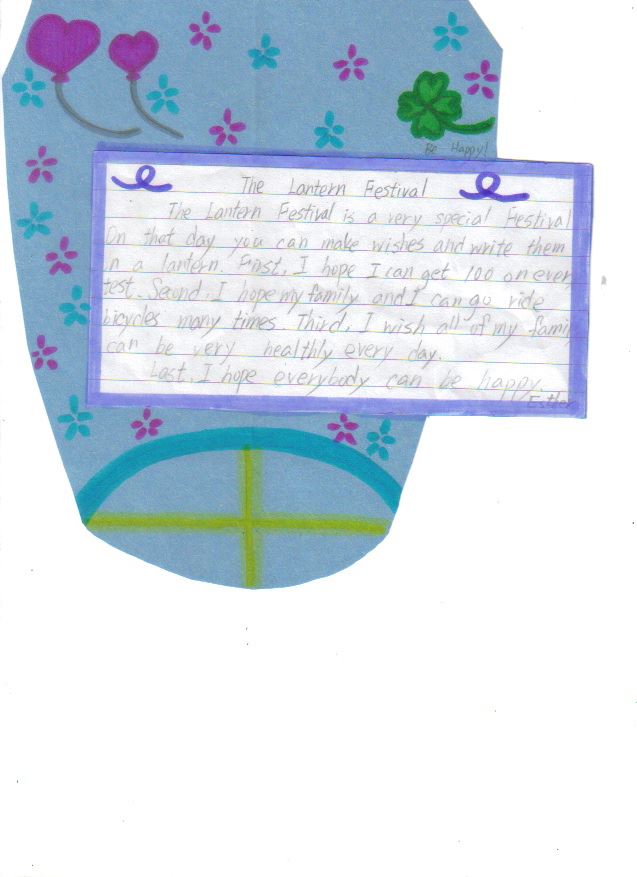 Be Happy!
The Lantern Festival
The Lantern Festival is a very special Festival
On that day you can make wishes and write them
in a lantern. First, I hope I can get 100 on every
test. Second, I hope my family and I can go ride
bicycles many times. Third, I wish all of my family
can be very healthly every day.
Last, I hope everybody can be happy.
Esther